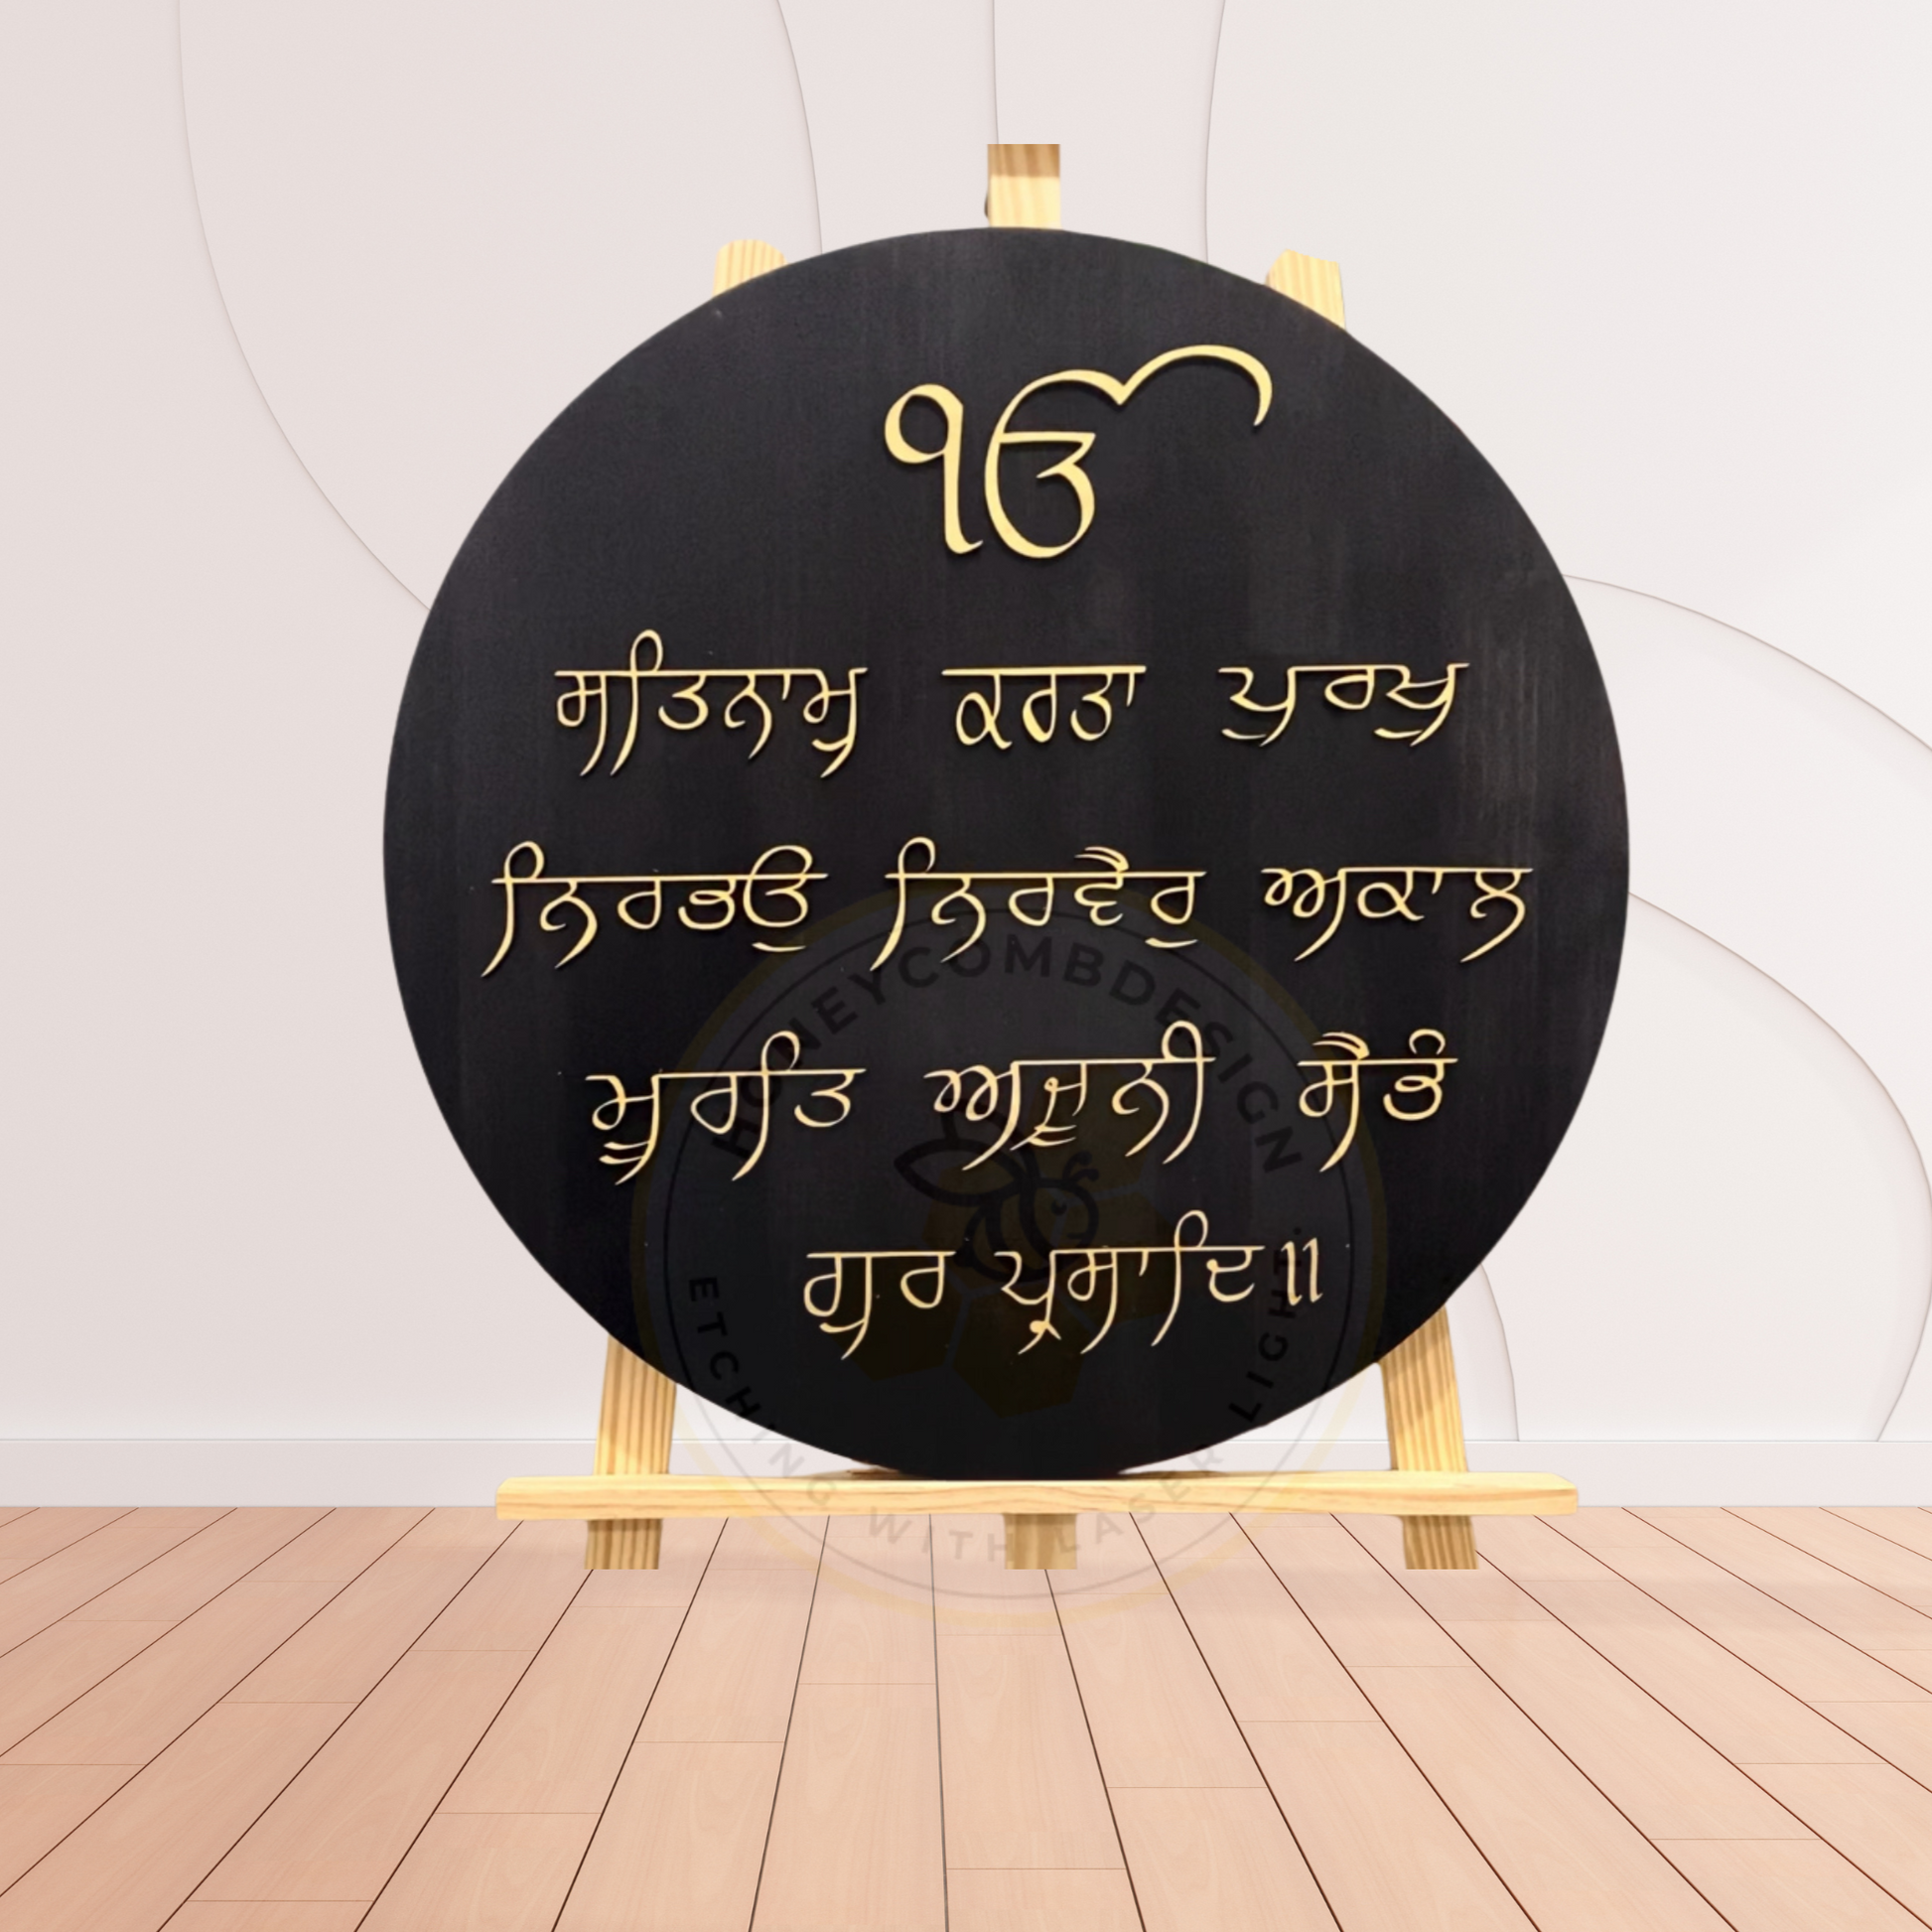 ੴ
ਸਤਿਨਾਮੁ ਕਰਤਾ ਪੁਰਖੁ
ਨਿਰਭਓੁ ਨਿਰਵੈਰੁ ਅਕਾਲ
ਮੂਰਤਿ ਅਜੂਨੀ ਸੈਭੰ
ਗੁਰ ਪ੍ਰਸਾਦਿ॥
HONEYCOMBDESIGN
ETCHING WITH LASER LIGHT.